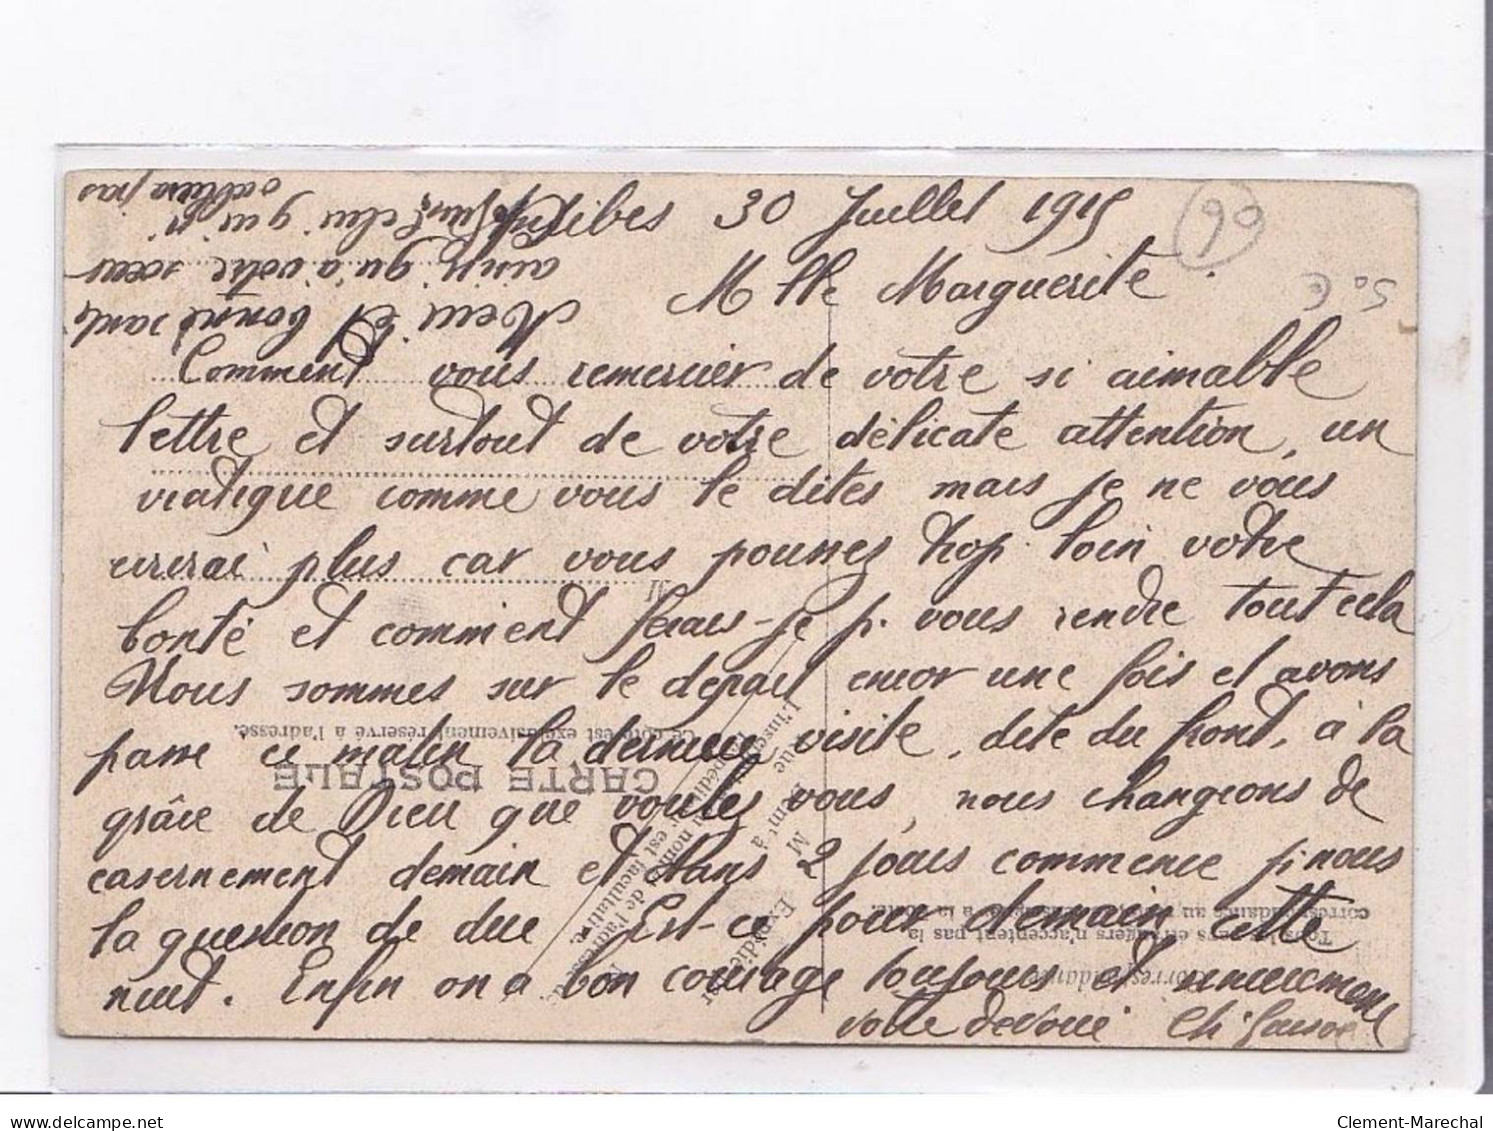 Antibes 30 Juillet 1915
Mlle Marguerite.
Comment vous remercier de votre si aimable
lettre et surtout de votre délicate attention, un
viatique comme vous le dites mais je ne vous
écrirai plus car vous poussez trop loin votre
bonté et comment ferais-je p. vous rendre tout cela
Nous sommes sur le départ encor une fois et avons
passé ce matin la dernière visite, dite du front, à la
grâce de Dieu que voulez vous, nous changeons de
casernement demain et dans 2 jours commence p. nous
la question de Est-ce pour demain cette
nuit. Enfin on a bon courage toujours et
votre dévoué Ch.
Merci et bonne santé
ainsi qu'à votre sœur
celui qui n'
oubliera pas
CARTE POSTALE
Ce côté est exclusivement réservé à l'adresse.
M
Tous les pays étrangers n'acceptent pas la
correspondance au
Correspondance
Expéditeur
M
Rue
est facultative.
90
50 €
Clement-Marechal